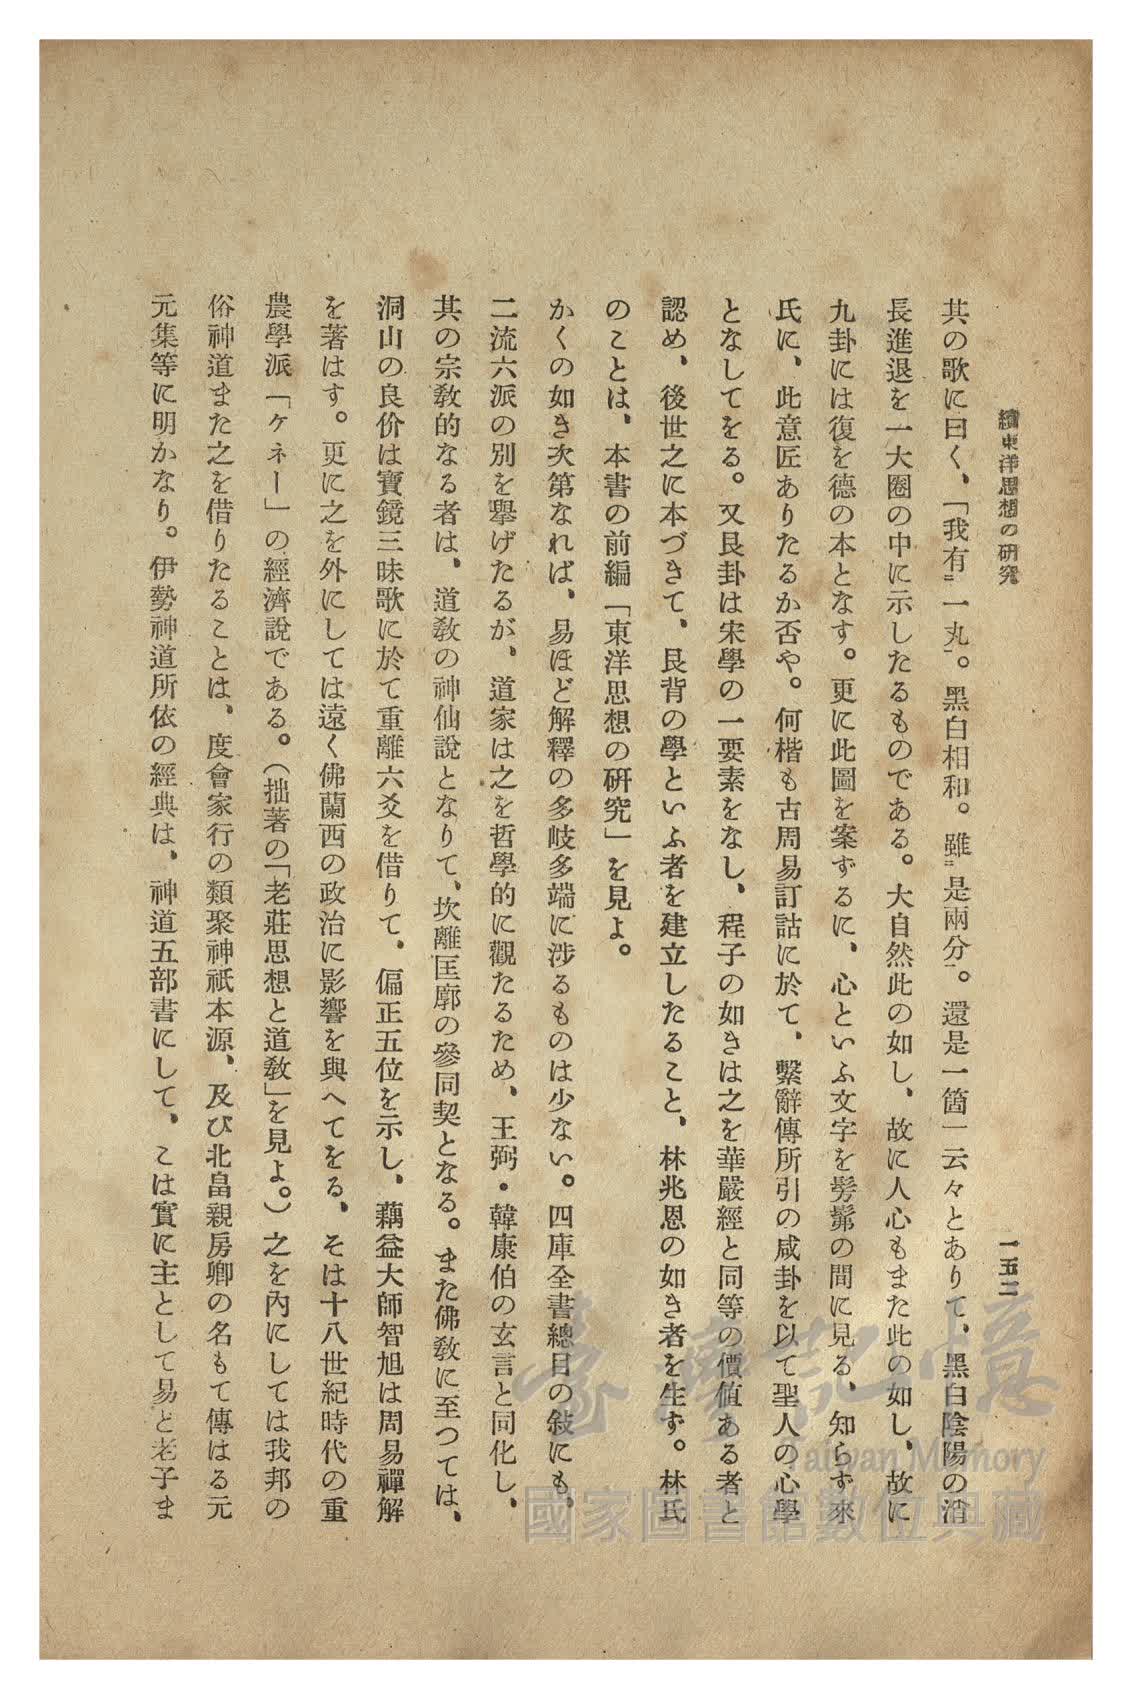 續東洋思想の研究
一五二
其の歌に曰く、「我有二一丸一。黑白相和。雖二是兩分一。還是一箇」云々とありて、黑白陰陽の消
長進退を一大圈の中に示したるものである。大自然此の如し、故に人心もまた此の如し、故に
九卦には復を德の本となす。更に此圖を案ずるに、心といふ文字を髣髴の間に見る、知らず來
氏に、此意匠ありたるか否や。何楷も古周易訂詁に於て、繫辭傳所引の咸卦を以て聖人の心學
となしてをる。又艮卦は宋學の一要素をなし、程子の如きは之を華嚴經と同等の價値ある者と
認め、後世之に本づきて、艮背の學といふ者を建立したること、林兆恩の如き者を生ず。林氏
のことは、本書の前編「東洋思想の硏究」を見よ。
かくの如き次第なれば、易ほど解釋の多岐多端に涉るものは少ない。四庫全書總目の敍にも、
二流六派の別を擧げたるが、道家は之を哲學的に觀たるため、王弼・韓康伯の玄言と同化し、
其の宗敎的なる者は、道敎の神仙說となりて、坎離匡廓の參同契となる。また佛敎に至つては、
洞山の良价は寶鏡三昧歌に於て重離六爻を借りて、偏正五位を示し、藕益大師智旭は周易禪解
を著はす。更に之を外にしては遠く佛蘭西の政治に影響を與へてをる、そは十八世紀時代の重
農學派「ケネー」の經濟說である。（拙著の「老莊思想と道敎」を見よ。）之を內にしては我邦の
俗神道また之を借りたることは、度會家行の類聚神祇本源、及び北畠親房卿の名もて傳はる元
元集等に明かなり。伊勢神道所依の經典は、神道五部書にして、こは實に主として易と老子ま
臺灣記憶
Taiwan Memory
國家圖書館數位典藏